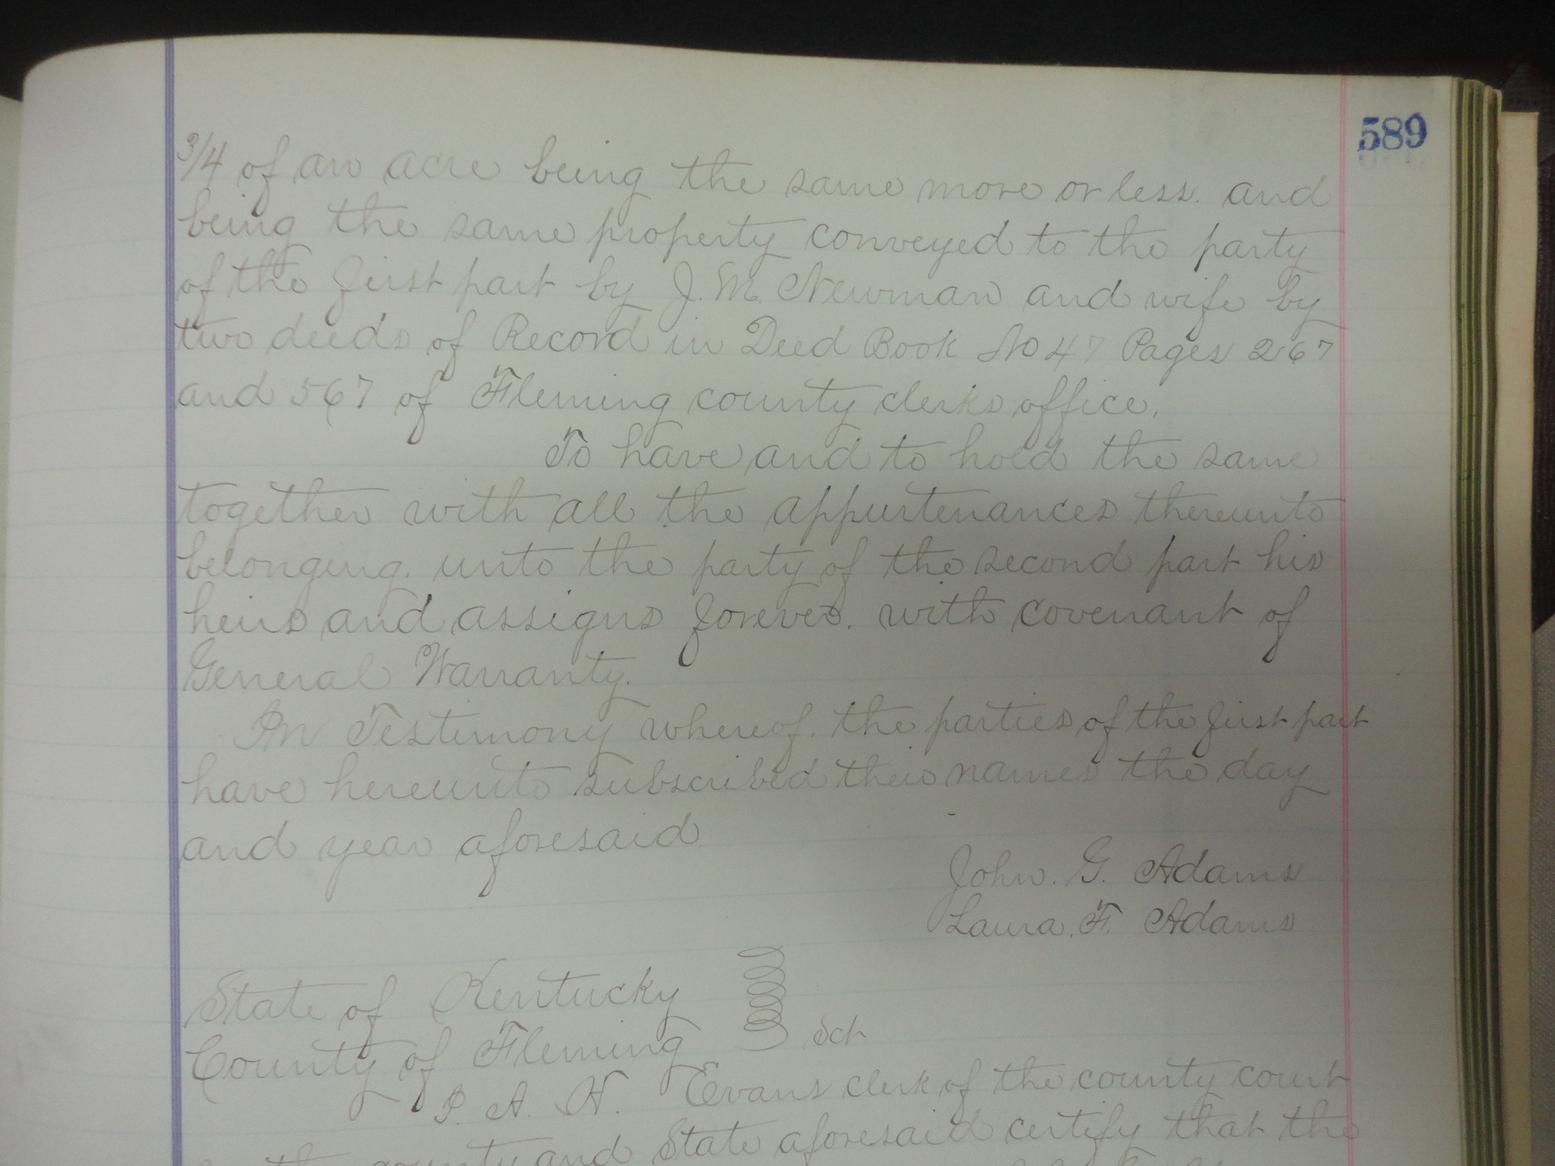 589
3/4 of an acre being the same more or less. and
being the same property conveyed to the party
of the first part by J. M. Newman and wife by
two deeds of Record in Deed Book No 47 Pages 267
and 567 of Fleming county clerks office.
To have and to hold the same
together with all the appurtenances thereunto
belonging. unto the party of the second part his
heirs and assigns forever. with covenant of
General Warranty.
In Testimony whereof. the parties of the first part
have hereunto subscribed their names the day
and year aforesaid
John. G. Adams
Laura. F. Adams
State of Kentucky
County of Fleming Sct
I. A. N. Evans clerk of the county court
county and State aforesaid certify that the